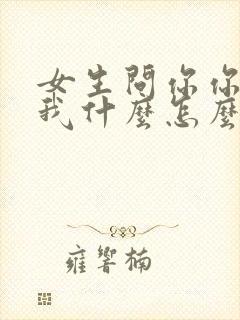 女生問你你
我什麼怎麼
雍響楠